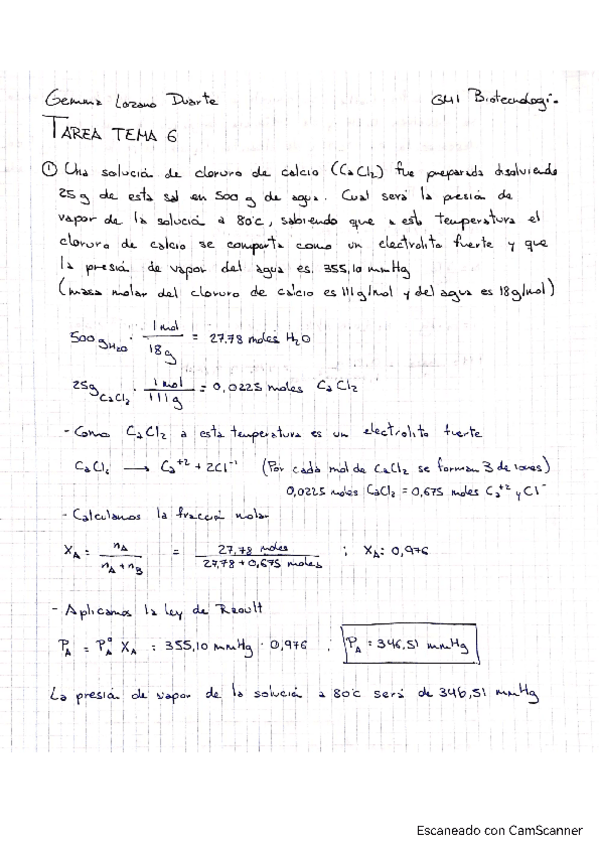 Gemma Lozano Duarte GM1 Biotecnología.
TAREA TEMA 6
① Una solución de cloruro de calcio (CaCl₂) fue preparada disolviendo
25 g de esta sal en 500 g de agua. Cual será la presión de
vapor de la solución a 80°c, sabiendo que a esta temperatura el
cloruro de calcio se comporta como un electrolito fuerte y que
la presión de vapor del agua es. 355,10 mmHg
(masa molar del cloruro de calcio es 111 g/mol y del agua es 18g/mol)
500 g H₂O · 1 mol / 18 g = 27.78 moles H₂O
25g CaCl₂ · 1 mol / 111 g = 0,0225 moles CaCl₂
- Como CaCl₂ a esta temperatura es un electrolito fuerte
CaCl₂ → Ca⁺² + 2Cl⁻¹ (Por cada mol de CaCl₂ se forman 3 de iones)
0,0225 moles CaCl₂ = 0,675 moles Ca⁺² y Cl⁻
- Calculamos la fracción molar
X_A = n_A / n_A + n_B = 27,78 moles / 27,78 + 0,675 moles ; X_A: 0,976
- Aplicamos la ley de Raoult
P_A = P_A° X_A : 355,10 mmHg · 0,976 ; P_A = 346,51 mmHg
La presión de vapor de la solución a 80°c será de 346,51 mmHg
Escaneado con CamScanner